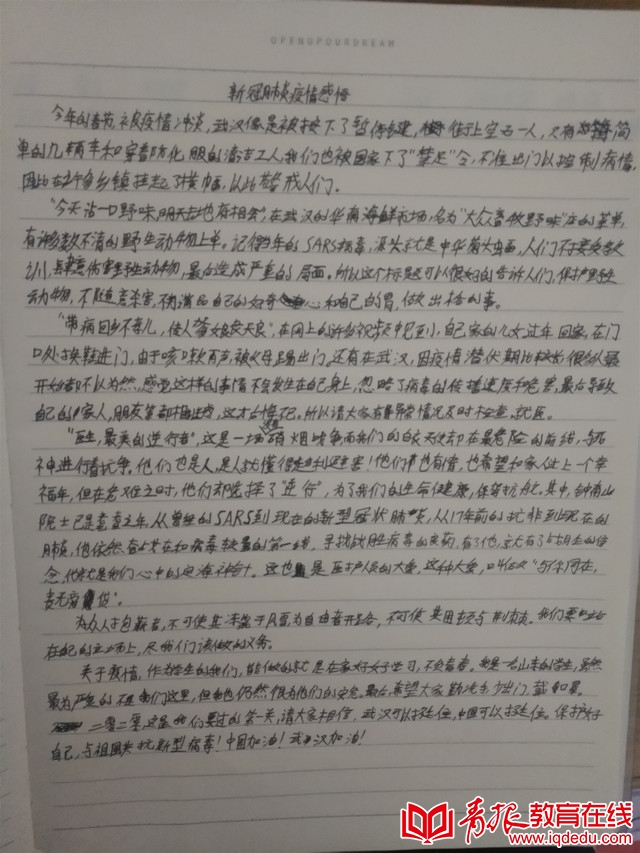 OPENUPOURDREAM
新冠肺炎疫情感悟
今年的春节被疫情冲淡，武汉像是被按下了暂停键，街上空无一人，只有简
单的几辆车和穿着防化服的清洁工人，我们也被国家下了"禁足"令，不准出门以控制病情，
因此在许多乡镇挂起了横幅，以此警戒人们。
"今天沾一口野味，明天地府相会"，在武汉的华南海鲜市场，名为"大众畜牧野味"店的菜单，
有许多数不清的野生动物上单，记得当年的SARS病毒，源头就是中华菊头蝠，人们不
伤害野生动物，最后造成严重的局面。所以这个标题可以很好的告诉人们，保护野生
动物，不随意杀害，不满足自己的好奇心和自己的胃，做出格的事。
"带病回乡不孝儿，传人爹娘丧天良"，在网上的许多视频中见到，自己家的儿女过年回家，在门
口处换鞋进门，由于咳嗽声，被父母踢出门，还有在武汉，因疫情潜伏期比较长，很多人最
开始都不以为然，感觉这样的事情不会发生在自己身上，忽略了病毒的传播速度和危害，最后导致
自己的家人，朋友等都相继，这才后悔。所以请大家有异常情况及时检查，就医。
"医生，最美的逆行者"，这是一场硝烟战争，而我们的白衣天使却在最危险的前线，与死
神进行着抗争，他们也是人，是人就懂得趋利避害！他们有情，也希望和家人过上一个幸
福年，但在危难之时，他们却选择了"逆行"，为了我们的生命健康，保驾护航。其中，钟南山
院士已是耄耋之年，从曾经的SARS到现在的新型冠状肺炎，从17年前的抗非到现在的
肺炎，他依然奋战在和病毒较量的第一线，寻找战胜病毒的良药，有了他，就有了战胜的信
念，他就是我们心中的定海神针。这也是医护人员的大爱，这种大爱，叫做"与你同在，
责无旁贷"。
为众人抱薪者，不可使其冻毙于风雪，为自由者开路，不可使其困顿于荆棘。我们要站
在自己的立场上，尽我们该做的义务。
关于疫情，作为学生的我们，能做的就是在家好好学习，不去添乱。我是一名山东的学生，虽然
最为严重的不是我们这里，但我仍然很为他们的安危。最后希望大家勤洗手，少出门，戴口罩。
二零二零，这是我们要过的第一关，请大家相信，武汉可以挺住，中国可以挺住。保护好
自己，与祖国共抗新型病毒！中国加油！武汉加油！
青报教育在线
www.iqdedu.com